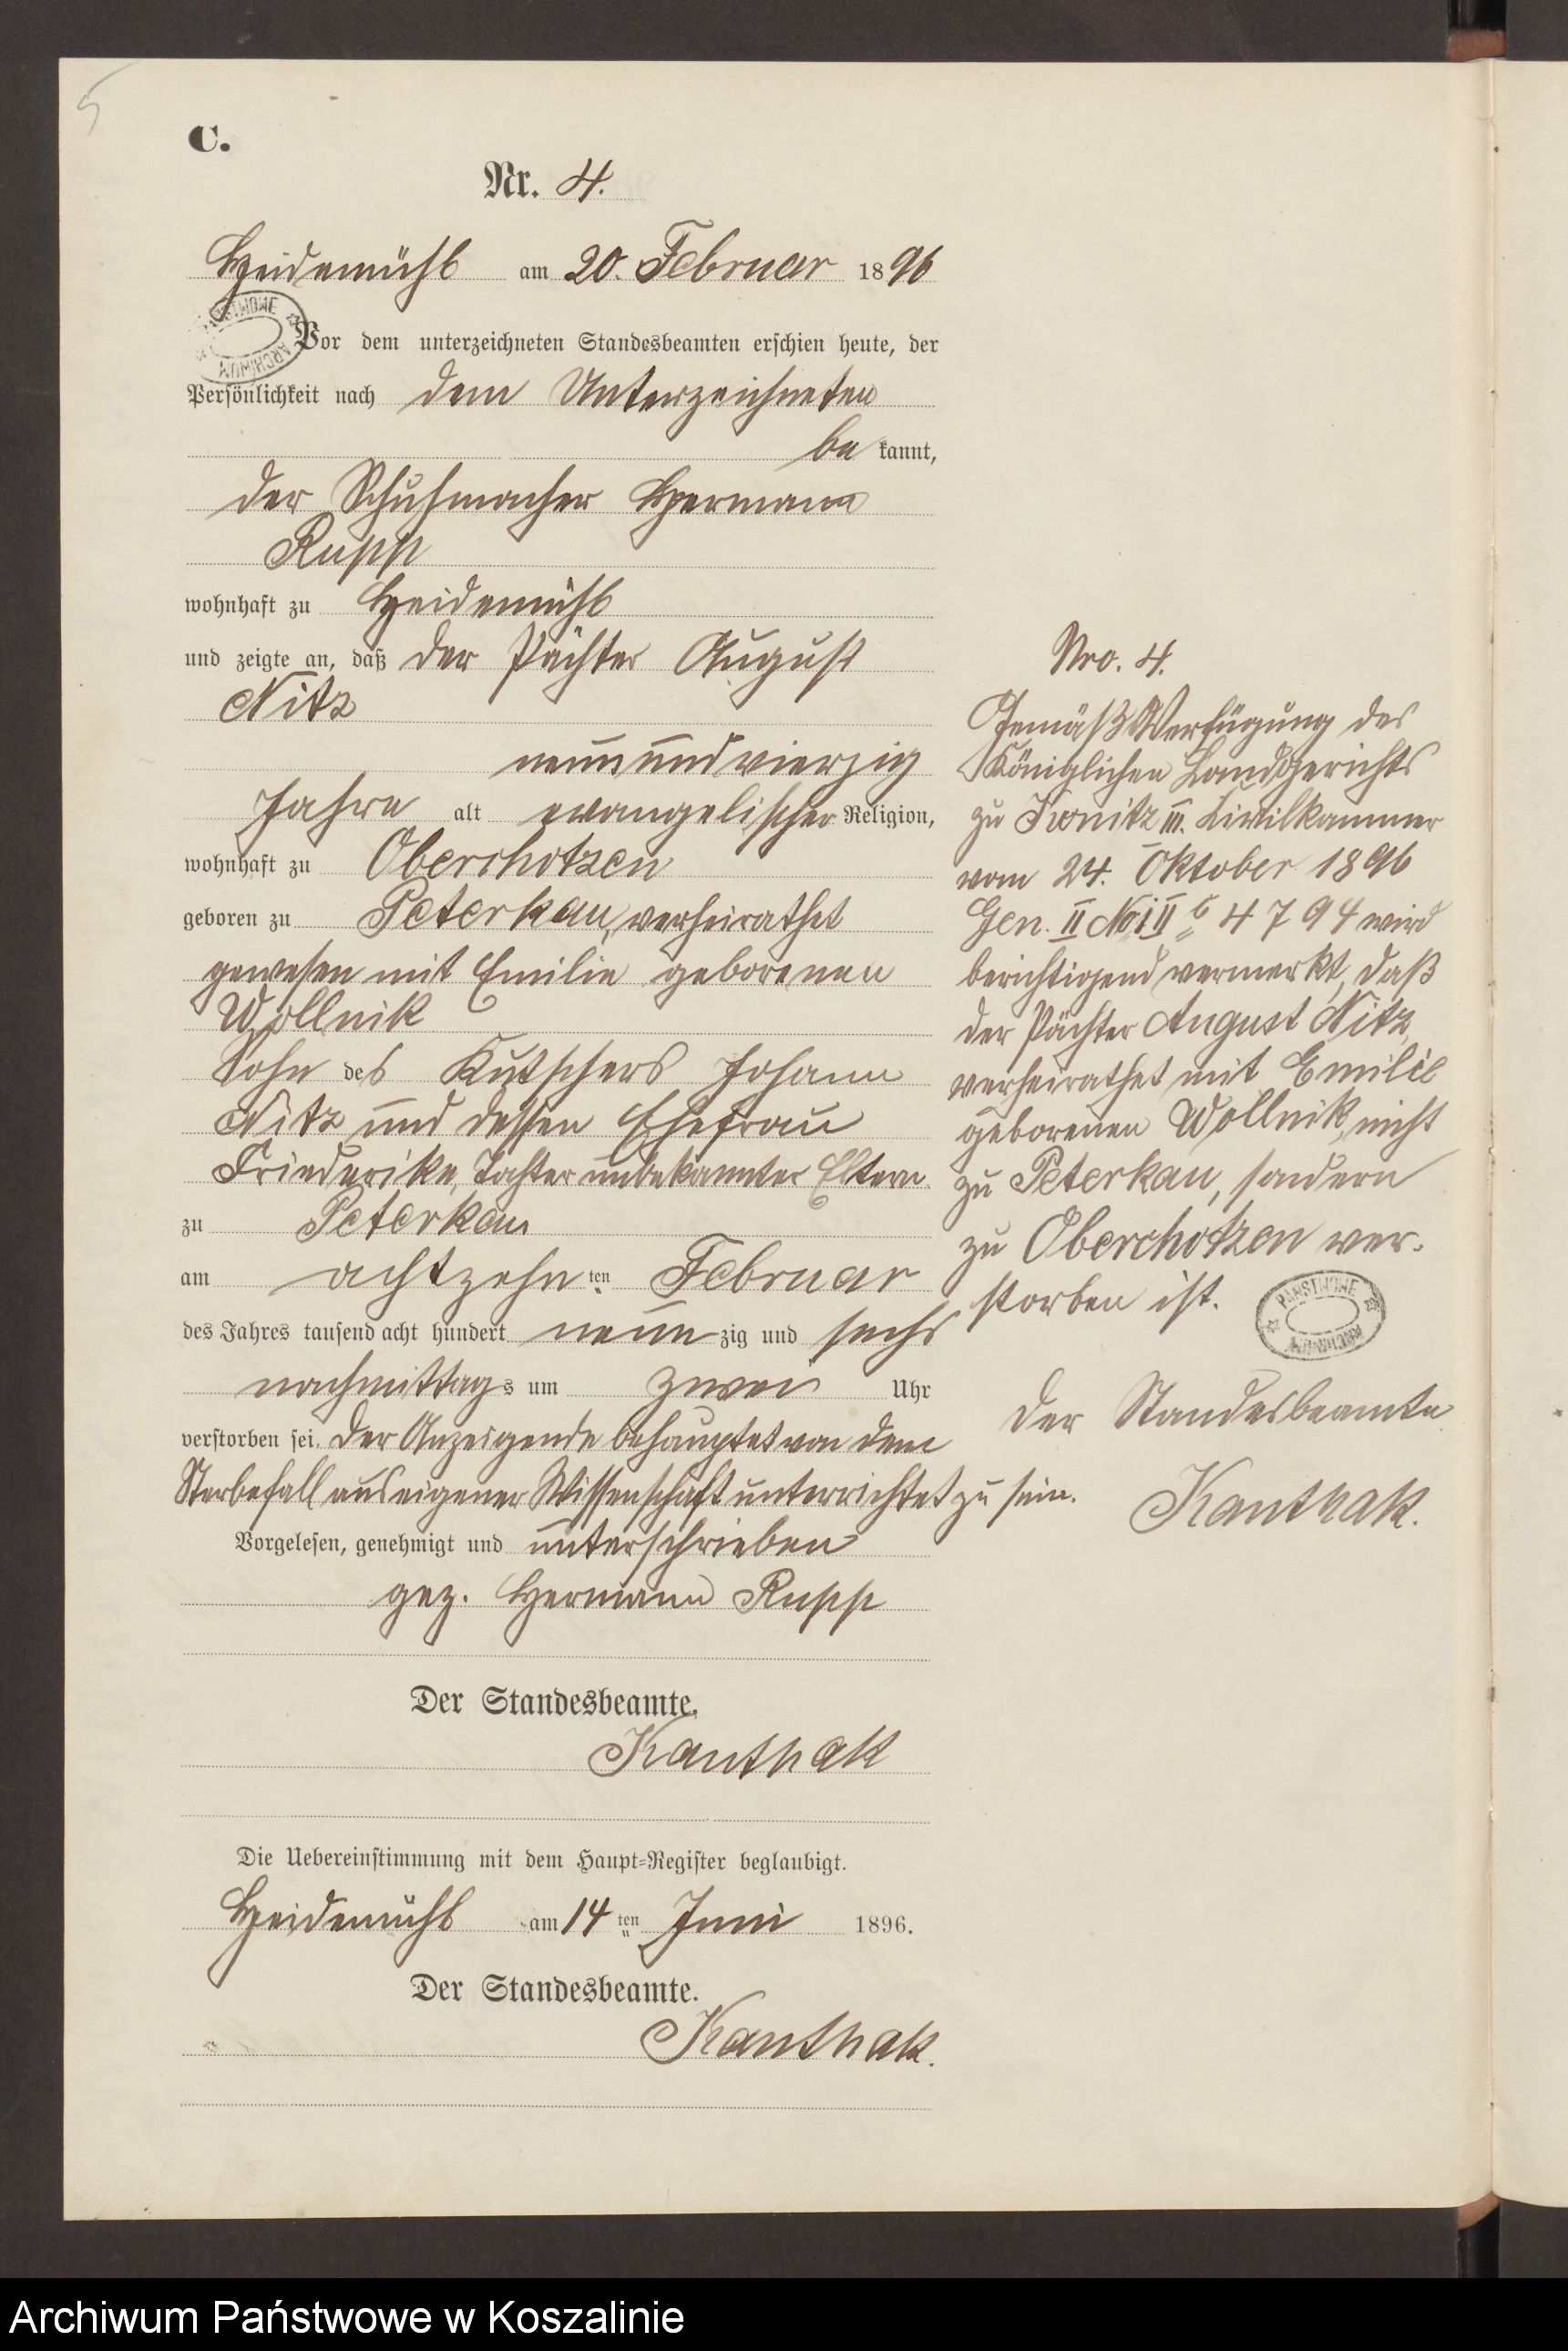 5
C.
Nr. 4.
Heidemühl am 20. Februar 1896
Vor dem unterzeichneten Standesbeamten erschien heute, der
Persönlichkeit nach dem Unterzeichneten
be kannt,
der Schuhmacher Hermann
Rupp
wohnhaft zu Heidemühl
und zeigte an, daß der Pächter August
Nitz
neunundvierzig
Jahre alt evangelischer Religion,
wohnhaft zu Oberchotzen
geboren zu Peterkau, verheirathet
gewesen mit Emilie geborenen
Wollnik
Sohn des Kutschers Johann
Nitz und dessen Ehefrau
Friederike, Tochter unbekannter Eltern
zu Peterkau
am achtzehn ten Februar
des Jahres tausend acht hundert neun zig und sechs
nachmittags um zwei Uhr
verstorben sei. Der Anzeigende behauptet von dem
Sterbefall aus eigener Wissenschaft unterrichtet zu sein.
Vorgelesen, genehmigt und unterschrieben
gez. Hermann Rupp
Der Standesbeamte.
Kanthak
Die Uebereinstimmung mit dem Haupt=Register beglaubigt.
Heidemühl am 14 ten Juni 1896.
Der Standesbeamte.
Kanthak.
Nro. 4.
Gemäß Verfügung des
Königlichen Landgerichts
zu Konitz III. Civilkammer
vom 24. Oktober 1896
Gen. II No 4794 wird
berichtigend vermerkt, daß
der Pächter August Nitz,
verheirathet mit Emilie
geborenen Wollnik, nicht
zu Peterkau, sondern
zu Oberchotzen ver.
storben ist.
Der Standesbeamte
Kanthak.
PAŃSTWOWE ARCHIWUM
PAŃSTWOWE ARCHIWUM
Archiwum Państwowe w Koszalinie